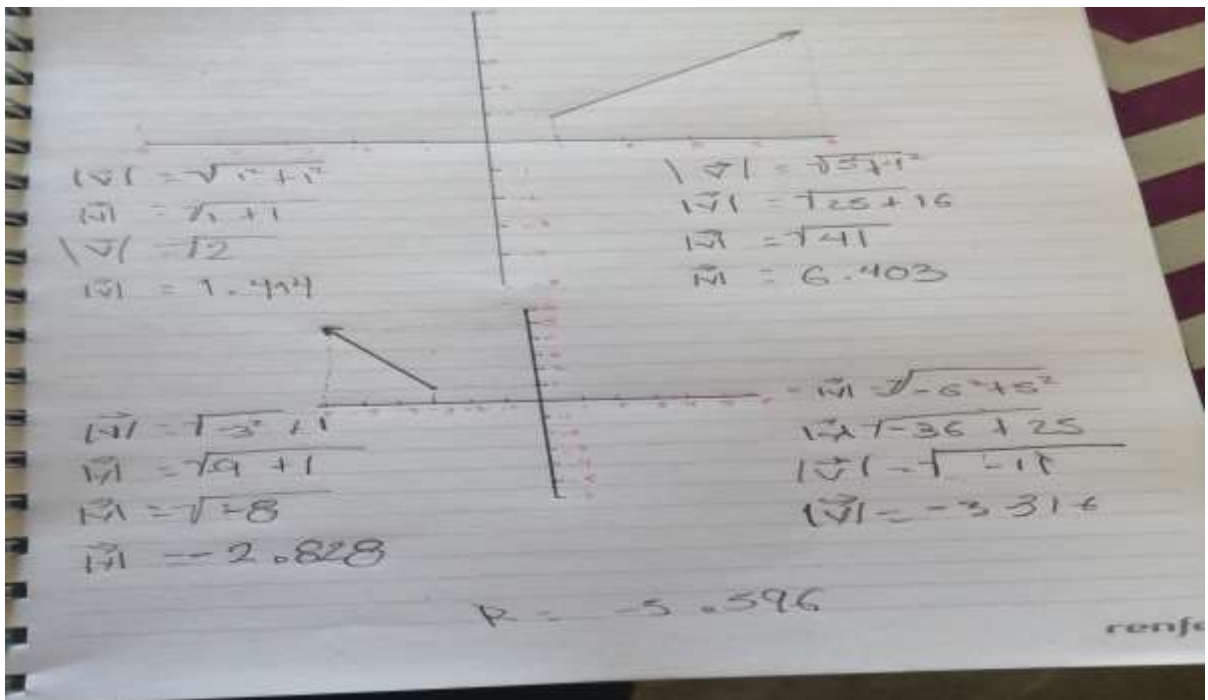 |v⃗| = √1² + 1²
|v⃗| = √1 + 1
|v⃗| = √2
|v⃗| = 1.414
|v⃗| = √25 + 16
|v⃗| = √41
|v⃗| = 6.403
|v⃗| = √-3² + 1
|v⃗| = √-9 + 1
|v⃗| = √-8
|v⃗| = -2.828
|v⃗| = √-6² + 5²
|v⃗| = √-36 + 25
|v⃗| = √-11
|v⃗| = -3.316
R = -5.596